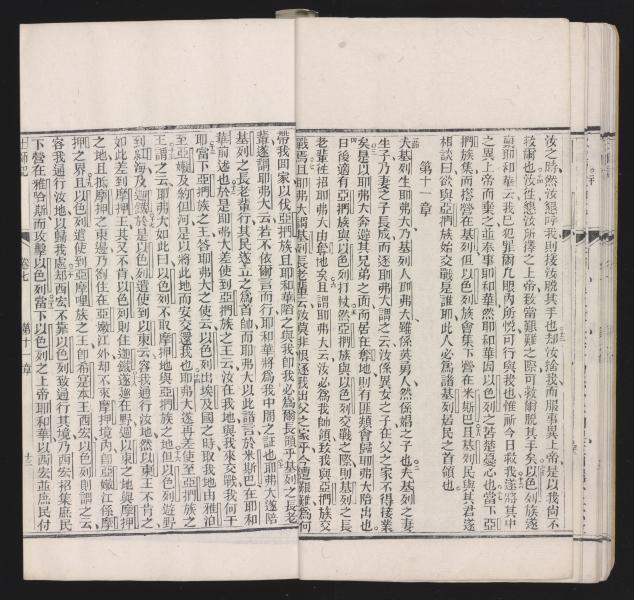 汝之時然汝懇呼我則接汝脫其手也却汝捨我而服事異上帝是以我尙不
救爾也汝徃懇汝所擇之上帝致當艱難之際可救爾脫其手矣以色列族遂
謂耶和華云我已犯罪爾凡眼內所悅可行與我也惟祈今日救我遂將其中
之異上帝而棄之並奉事耶和華然耶和華因以色列之苦楚憂心也當下亞
捫族集而搭營在基列但以色列族會集下營在米斯巴且基列民與其君遂
相談曰欲與亞捫族始交戰是誰耶此人必爲諸基列居民之首領也
第十一章
夫基列生耶弗大乃基列人耶弗大雖係英男人然係娼之子也夫基列之妻
生子乃妻之子長成而逐耶弗大謂之云汝係異女之子在父之家不得接業
矣是以耶弗大奔避其兄弟之面而居在阧地則有匪類會歸耶弗大陪出也
日後適有亞捫族與以色列打杖然亞捫族與以色列交戰之際則基列之長
老輩徃招耶弗大由阧地矣且謂耶弗大云汝必爲我帥領致我與亞捫族交
戰焉且耶弗大謂基列長老輩云汝莫非恨逐我出父之家乎今遭艱難爲何
帶我回家以伐亞捫族且耶和華陷之與我卽我必爲爾長領乎基列之長老
輩遂謂耶弗大云若不依爾言而行耶和華將爲我中間之証也耶弗大遂陪
基列之長老輩行其民遂立之爲首帥而耶弗大以此諸言於米斯巴在耶和
華前述也於是耶弗大差使到亞捫族之王云汝在我地與我來交戰我何干
耶當下亞捫族之王答耶弗大之使云以色列出埃及國之時取我地由雅泊
至亞嫩及若但河是以將此地而安交還我也耶弗大遂再差使至亞捫族之
王謂之云耶弗大如此曰以色列不取摩押地與亞捫族之地但以色列遊野
到紅海及迦鐵於是以色列遣使到以東云容我通行汝地然以東王不肯也
如此差到摩押王其又不肯以色列則住迦鐵遂遊在野週以東之地與摩押
之地且抵摩押之東邊乃劄住在亞嫩江外却不來摩押境內卽亞嫩江係摩
押之界且以色列遣使到亞摩哩族之王卽希寔本王西宏以色列則謂之云
容我通行汝地以歸我處却西宏不靠以色列致過行其境乃西宏招集庶民
下營在雅哈斯而攻擊以色列當下以色列之上帝耶和華以西宏並庶民付
士師記
卷七
第十一章